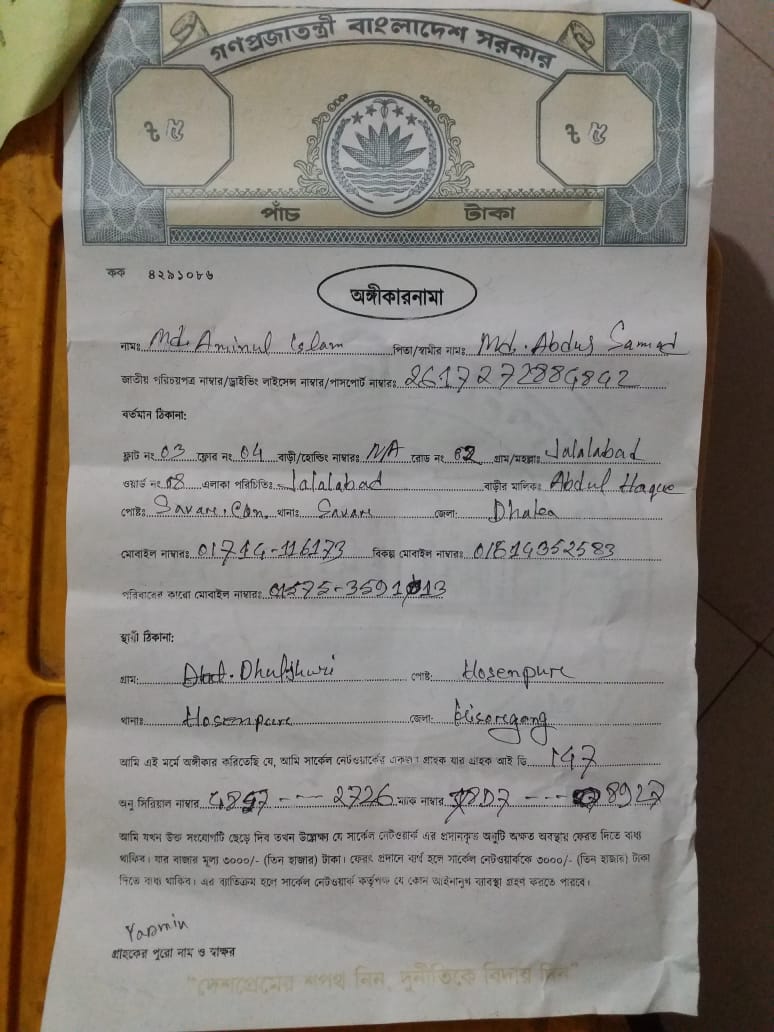 গণপ্রজাতন্ত্রী বাংলাদেশ সরকার
৳ ৫ ৳ ৫
পাঁচ টাকা
কক ৪২৯১০৮৬
অঙ্গীকারনামা
নামঃ Md. Aminul Islam পিতা/স্বামীর নামঃ Md. Abdus Samad
জাতীয় পরিচয়পত্র নাম্বার/ড্রাইভিং লাইসেন্স নাম্বার/পাসপোর্ট নাম্বারঃ
বর্তমান ঠিকানা:
ফ্লাট নং 03 ফ্লোর নং 04 বাড়ী/হোল্ডিং নাম্বারঃ N/A রোড নং 02 গ্রাম/মহল্লাঃ Jalalabad
ওয়ার্ড নং 08 এলাকা পরিচিতিঃ Jalalabad বাড়ীর মালিকঃ Abdul Haque
পোষ্টঃ Savar, Can. থানাঃ Savar জেলা: Dhaka
মোবাইল নাম্বারঃ 01714-116173 বিকল্প মোবাইল নাম্বারঃ
পরিবারের কারো মোবাইল নাম্বারঃ
স্থায়ী ঠিকানা:
গ্রাম: পোষ্ট: Hosenpure
থানাঃ Hosenpure জেলা: Kisoregang
আমি এই মর্মে অঙ্গীকার করিতেছি যে, আমি সার্কেল নেটওয়ার্কের একজন গ্রাহক যার গ্রাহক আই ডি 147
অনু সিরিয়াল নাম্বার 2726 ম্যাক নাম্বার 8927
আমি যখন উক্ত সংযোগটি ছেড়ে দিব তখন উল্লেক্ষা যে সার্কেল নেটওয়ার্ক এর প্রদানকৃত অনুটি অক্ষত অবস্থায় ফেরত দিতে বাধ্য
থাকিব। যার বাজার মূল্য ৩০০০/- (তিন হাজার) টাকা। ফেরৎ প্রদানে ব্যর্থ হলে সার্কেল নেটওয়ার্ককে ৩০০০/- (তিন হাজার) টাকা
দিতে বাধ্য থাকিব। এর ব্যতিক্রম হলে সার্কেল নেটওয়ার্ক কর্তৃপক্ষ যে কোন আইনানুগ ব্যবস্থা গ্রহণ করতে পারবে।
Yasmin
গ্রাহকের পুরো নাম ও স্বাক্ষর
"দেশপ্রেমের শপথ নিন, দুর্নীতিকে বিদায় দিন"